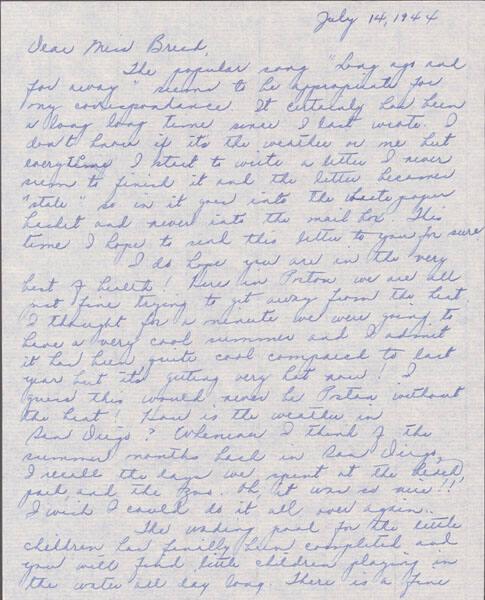 July 14, 1944
Dear Miss Breed,
The popular song "Long ago and
far away" seems to be appropriate for
my correspondance. It certainly has been
a long long time since I last wrote. I
don't know if it's the weather or me but
everytime I start to write a letter I never
seem to finish it and the letter becomes
"stale" so in it goes into the waste paper
basket and never into the mail box. This
time I hope to send this letter to you for sure
I do hope you are in the very
best of health! Here in Poston we are all
not fine trying to get away from the heat.
I thought for a minute we were going to
have a very cool summer and I admit
it has been quite cool compared to last
year but it's getting very hot now! I
guess this would never be Poston without
the heat! How is the weather in
San Diego? Whenever I think of the
summer months back in San Diego,
I recall the days we spent at the beach,
park and the zoo. Oh, it was so nice!!
I wish I could do it all over again.
The wading pool for the little
children has finilly been completed and
you will find little children playing in
the water all day long. There is a fine